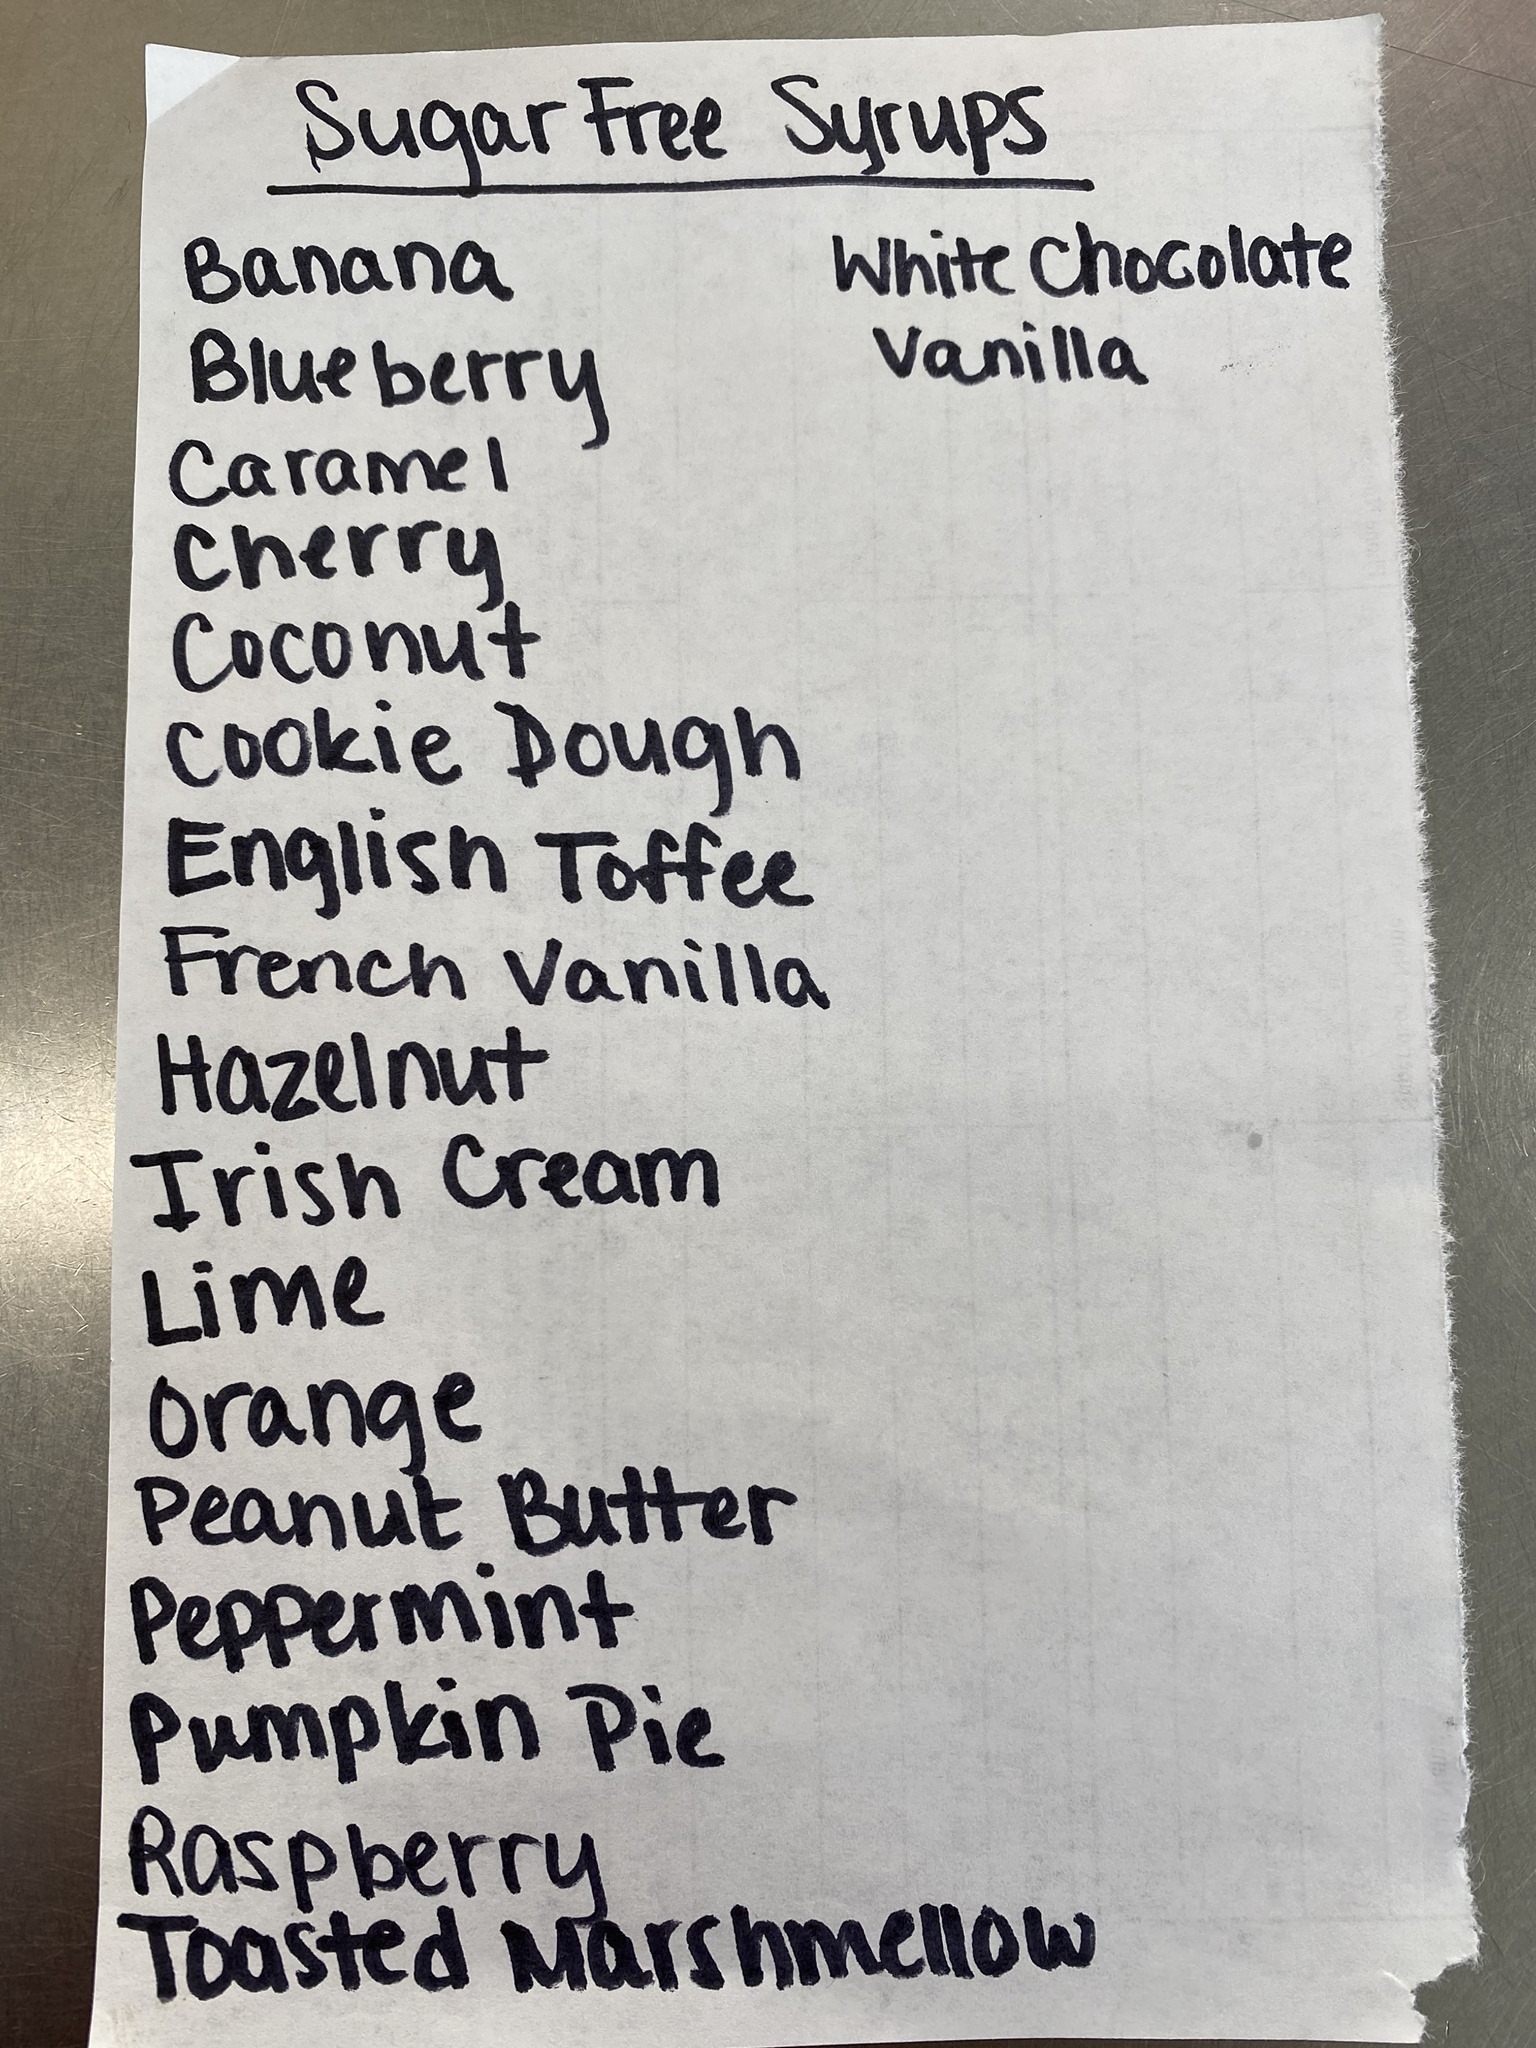 Sugar Free Syrups
Banana
Blueberry
Caramel
Cherry
Coconut
Cookie Dough
English Toffee
French Vanilla
Hazelnut
Irish Cream
Lime
Orange
Peanut Butter
Peppermint
Pumpkin Pie
Raspberry
Toasted Marshmellow
White Chocolate
Vanilla